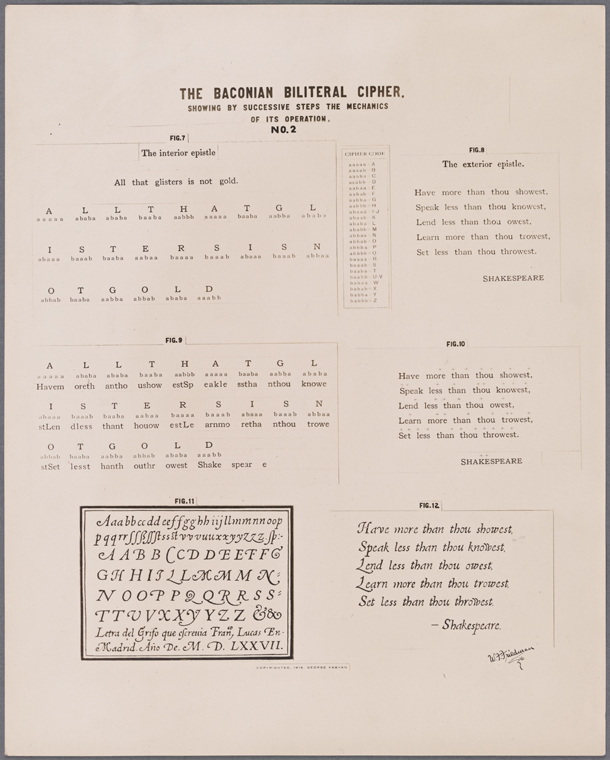 THE BACONIAN BILITERAL CIPHER,
SHOWING BY SUCCESSIVE STEPS THE MECHANICS
OF ITS OPERATION.
NO.2
FIG.7
The interior epistle
All that glisters is not gold.
A L L T H A T G L
aaaaa ababa ababa baaba aabbb aaaaa baaba aabba ababa
I S T E R S I S N
abaaa baaab baaba aabaa baaaa baaab abaaa baaab abbaa
O T G O L D
abbab baaba aabba abbab ababa aaabb
CIPHER CODE
FIG.8
The exterior epistle.
Have more than thou showest,
Speak less than thou knowest,
Lend less than thou owest,
Learn more than thou trowest,
Set less than thou throwest.
SHAKESPEARE
FIG.9
A L L T H A T G L
aaaaa ababa ababa baaba aabbb aaaaa baaba aabba ababa
Havem oreth antho ushow estSp eakle sstha nthou knowe
I S T E R S I S N
abaaa baaab baaba aabaa baaaa baaab abaaa baaab abbaa
stLen dless thant houow estLe arnmo retha nthou trowe
O T G O L D
abbab baaba aabba abbab ababa aaabb
stSet lesst hanth outhr owest Shake spear e
FIG.10
Have more than thou showest,
Speak less than thou knowest,
Lend less than thou owest,
Learn more than thou trowest,
Set less than thou throwest.
SHAKESPEARE
FIG.11
Letra del Grifo que escrenia Franco Lucas En
Madrid. Año De. M. D. LXXVII.
FIG.12.
Have more than thou showest,
Speak less than thou knowest,
Lend less than thou owest,
Learn more than thou trowest,
Set less than thou throwest.
– Shakespeare.
W.F.Friedman
COPYRIGHTED, 1916 GEORGE FABYAN